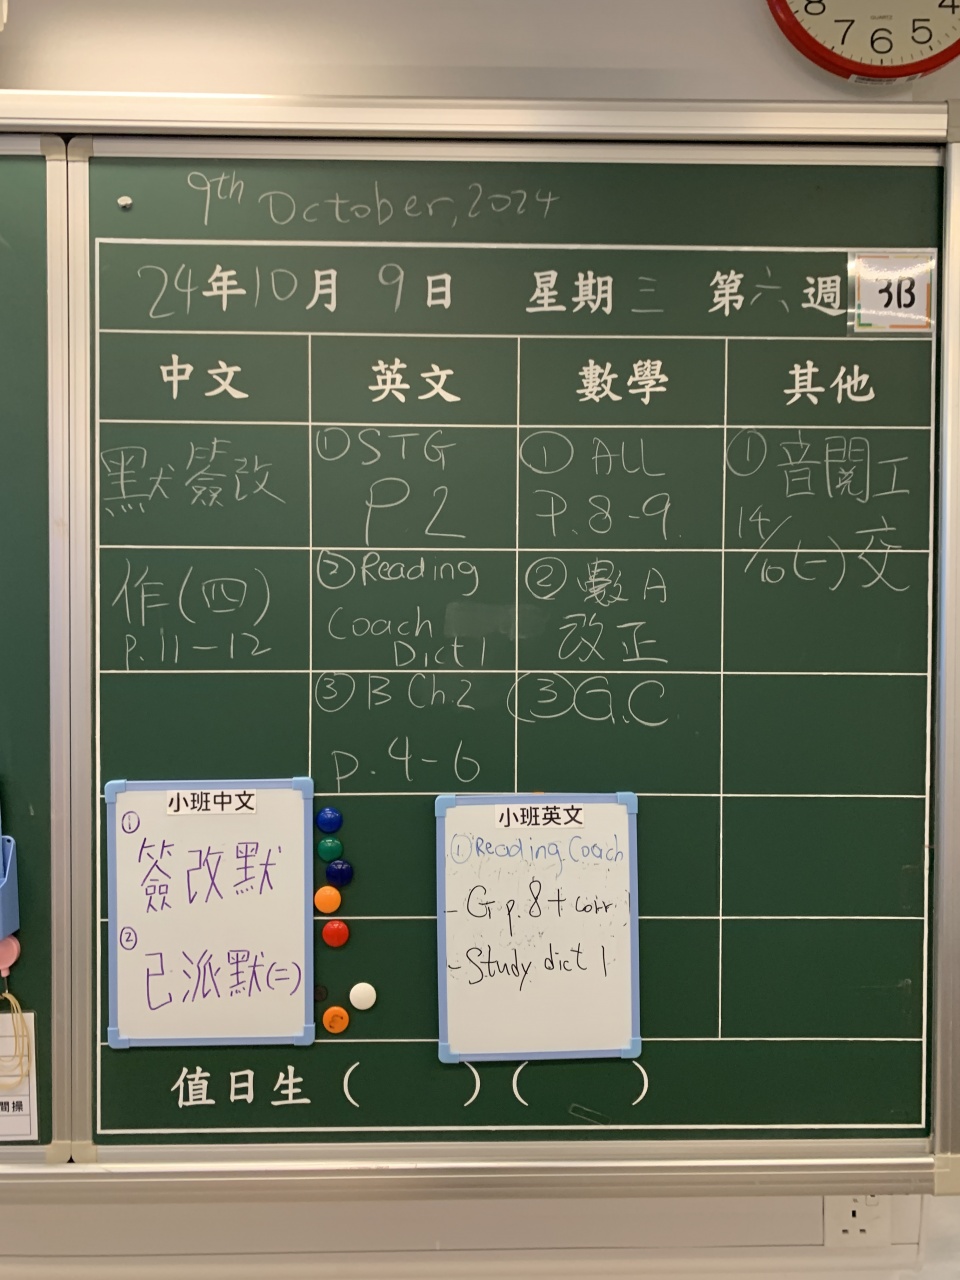 8 7 6 5 4
QUARTZ
9th October, 2024
24年10月9日 星期三 第六週 3B
中文 英文 數學 其他
默簽改
①STG
P.2
① ALL
P.8-9
① 音閱工
14/10(一)交
作(四)
p.11-12
②Reading
Coach
Dict 1
②數A
改正
③B Ch.2
p.4-6
③G.C
小班中文
①
簽改默
②
已派默(二)
小班英文
①Reading Coach
- G p.8 + corr
- Study dict 1
值日生 ( ) ( )
間操